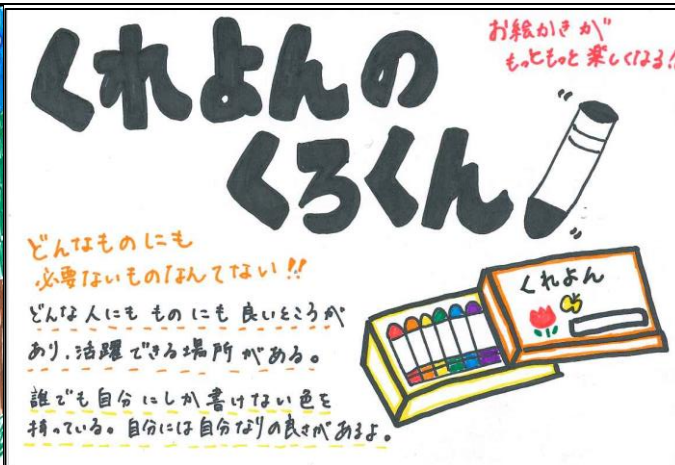 くれよんの
くろくん
お絵かきが
もっともっと楽しくなる!!
どんなものにも
必要ないものなんてない!!
どんな人にも ものにも 良いところが
あり、活躍できる場所がある。
誰でも自分にしか書けない色を
持っている。自分には自分なりの良さがあるよ。
くれよん